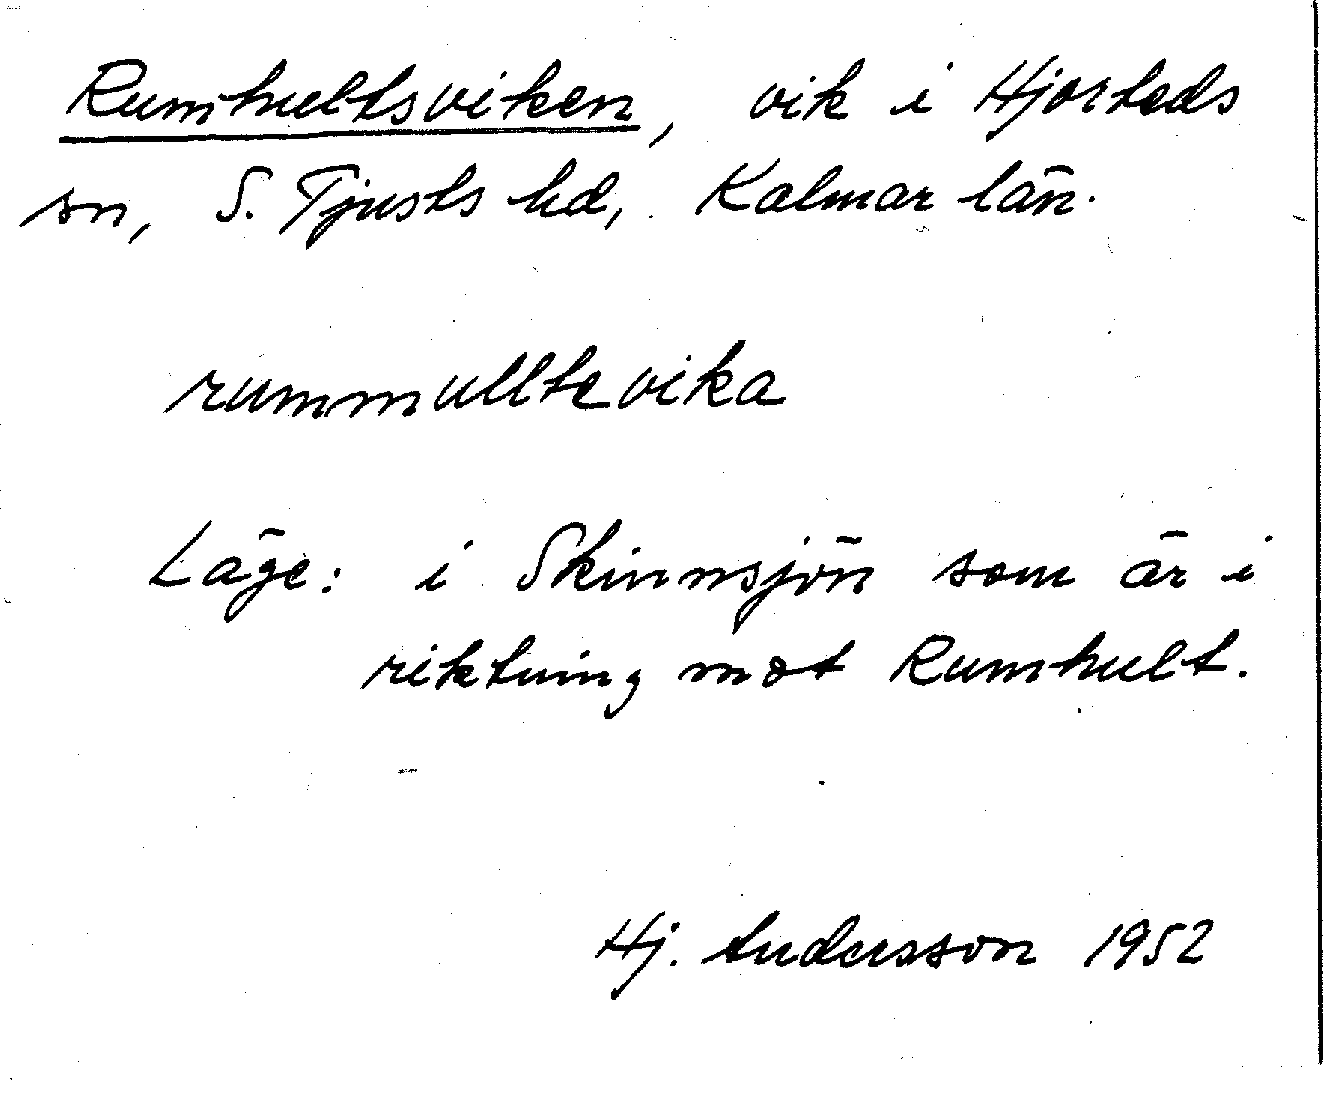 Rumhultsviken, vik i Hjorteds
sn, S. Tjusts hd, Kalmar län.
rummulltevika
Läge: i Skinnsjön som är i
riktning mot Rumhult.
Hj. Andersson 1952